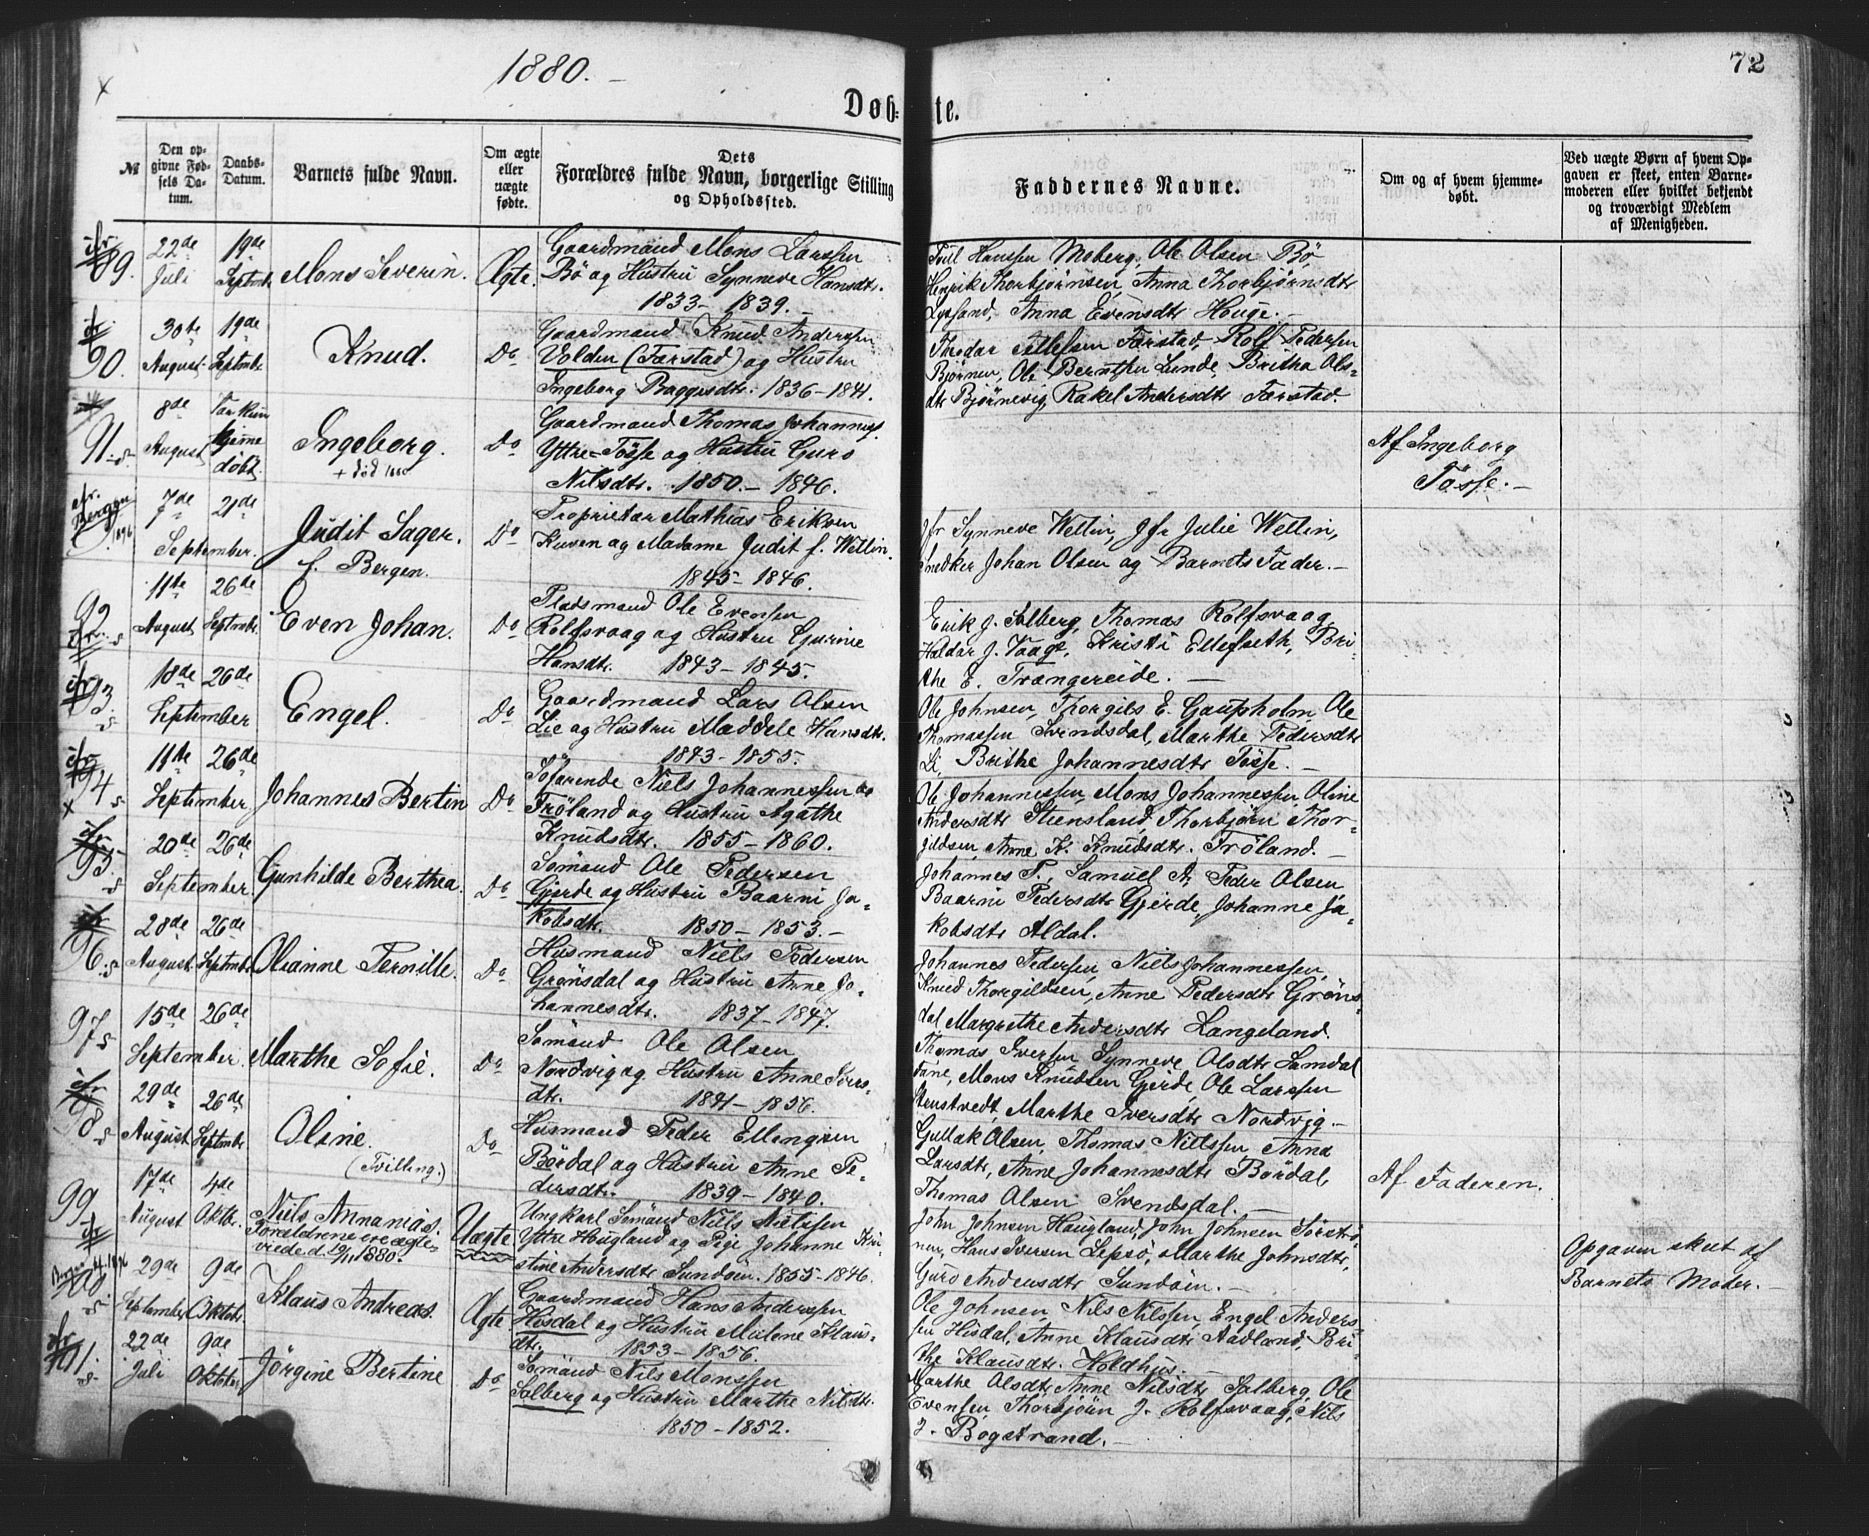 1880.
72
Døb-
te.
№
Den op-
givne Fød-
sels Da-
tum.
Daabs-
Datum.
Barnets fulde Navn.
Om ægte
eller
uægte
fødte.
Dets
Forældres fulde Navn, borgerlige Stilling
og Opholdssted.
Faddernes Navne.
Om og af hvem hjemme-
døbt.
Ved uægte Børn af hvem Op-
gaven er skeet, enten Barne-
moderen eller hvilket bekjendt
og troværdigt Medlem
af Menigheden.
89.
22de
Juli
19de
Septembr
Mons Severin.
Ægte.
Gaardmand Mons Larssen
Bø og Hustru Synneve Hansdtr.
1833 - 1839.
Hanssen Moberg, Ole Olsen Bø
Henrik Thorbjørnsen, Anna Thorbjørnsdtr
Lyssand, Anna Evensdtr Hauge. -
90.
30te
August
19de
Septembr
Knud.
Do
Gaardmand Knud Anderssen
Volden (Færstad) og Hustru
Ingeborg Baggesdtr. 1836 - 1841.
Tellefsen Færstad, Rolf Pedersen
Bjørnen, Ole Berntsen Lunde Britha Ols-
dtr Bjørnevig, Rakel Andersdtr Færstad.
91.
8de
August
Var kun
hjemme
døbt
Ingeborg.
+ død
Do
Gaardmand Thomas Johanness.
Yttre-Tøsse og Hustru Guro
Nilsdtr. 1850. - 1846.
Af Ingeborg
Tøsse. -
Bergen
1896
7de
21de
September.
Judit Sager.
f. Bergen.
Do
Proprietær Mathias Eriksen
Kuven og Madame Judit f. Wellin.
1845 - 1846.
Jfr Synneve Wellin, Jfr Julie Wellin,
Snedker Johan Olsen og Barnets Fader. -
92
11te
August
26de
Septembr.
Even Johan.
Do
Pladsmand Ole Evensen
Rolfsvaag og Hustru Gurine
Hansdtr. 1843 - 1845.
Erik J. Solberg, Thomas Rolfsvaag
Haldor J. Vaage, Kristi Ellefseth, Bri-
the E. Trængereide. -
93.
18de
26de
September
Engel.
Do
Gaardmand Lars Olsen
Lie og Hustru Maddele Hansdtr.
1843 - 1855.
Ole Johnsen, Thorgils E. Gaupholm, Ole
Thomassen Svendsdal, Marthe Pedersdtr
Li, Brithe Johannesdtr Tøsse. -
94
11te
26de
September
Johannes Bertin
Do
Søfarende Niels Johannessen
Frøland og Hustru Agathe
Knudsdtr. 1855 - 1860.
Ole Johannessen, Mons Johannessen, Oline
Andersdtr Steensland, Thorbjørn Thor-
gildsen, Anne K. Knudsdtr. Frøland. -
95.
20de
26de
September
Gunhilde Berthea.
Do
Sømand Ole Pedersen
Gjerde og Hustru Baarni Ja-
kobsdtr. 1850 - 1853. -
Johannes P., Samuel A. Peder Olsen
Baarni Pedersdtr Gjerde, Johanne Ja-
kobsdtr Aldal.
96.
28de
August
26de
Septembr
Olianne Pernille.
Do
Husmand Niels Pedersen
Grønsdal og Hustru Anne Jo-
hannesdtr. 1837 - 1847.
Johannes Pedersen, Niels Johannessen,
Knud Thorgildsen, Anne Pedersdtr Grøns-
dal Margrethe Andersdtr Langeland.
97
15de
26de
September.
Marthe Sofie.
Do
Sømand Ole Olsen
Nordvig og Hustru Anne Ivers-
dtr. 1841 - 1856.
Thomas Iversen, Synneve Olsdtr Samdal
Fane, Mons Knudsen Gjerde, Ole Larssen
Stenstvedt, Marthe Iversdtr Nordvig. -
98
29de
August
26de
Septembr
Oline.
(Tvilling.)
Do
Husmand Peder Ellingsen
Børdal og Hustru Anne Pe-
dersdtr. 1839 - 1840.
Gullak Olsen, Thomas Nielssen, Anna
Larsdtr, Anne Johannesdtr Børdal,
Thomas Olsen Svendsdal. -
Af Faderen.
99
17de
August
4de
Oktbr.
Niels Annanias.
Forældrene ere ægte-
viede d. /11 1880.
Uægte
Ungkarl Sømand Niels Nielssen
Yttre Haugland og Pige Johanne Kri-
stine Andersdtr Sundøen. 1855 - 1846.
John Johnsen Haugland, John Johnsen Sørstrø-
nen, Hans Iversen Lepsø, Marthe Johnsdtr,
Guro Andersdtr Sundøen. -
Opgaven skeet af
Barnets Moder. -
100.
29de
September
9de
Oktobr.
Klaus Andreas.
Ægte
Gaardmand Hans Anderssen
Hisdal og Hustru Malene Klaus-
dtr. 1853 - 1856.
Ole Johnsen, Nils Nilssen, Engel Anders-
sen Hisdal, Anne Klausdtr Aadland, Bri-
the Klausdtr. Holdhus. -
101.
22de
Juli
9de
Oktober
Jørgine Bertine
Do
Sømand Nils Monssen
Solberg og Hustru Marthe Nilsdtr.
1850 - 1852.
Marthe Olsdtr, Anne Nilsdtr Solberg, Ole
Evensen, Thorbjørn J. Rolfsvaag, Nils
J. Bogstrand. -